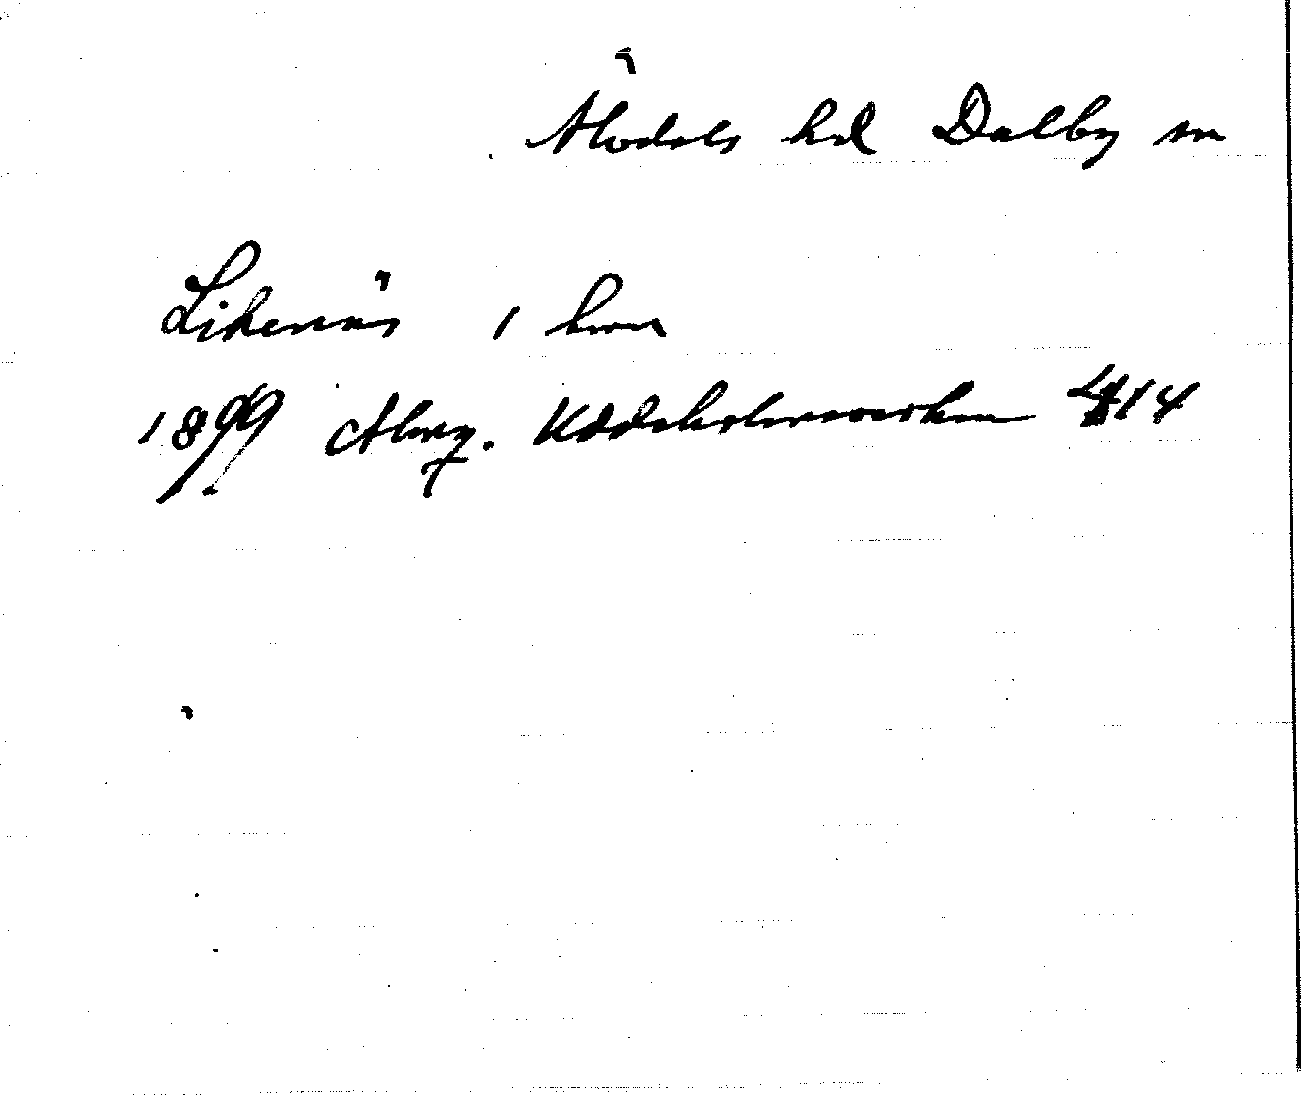 Älvdals hd Dalby sn
Likenäs 1 hmn
1899 Afvg. Uddeholmsverken 14